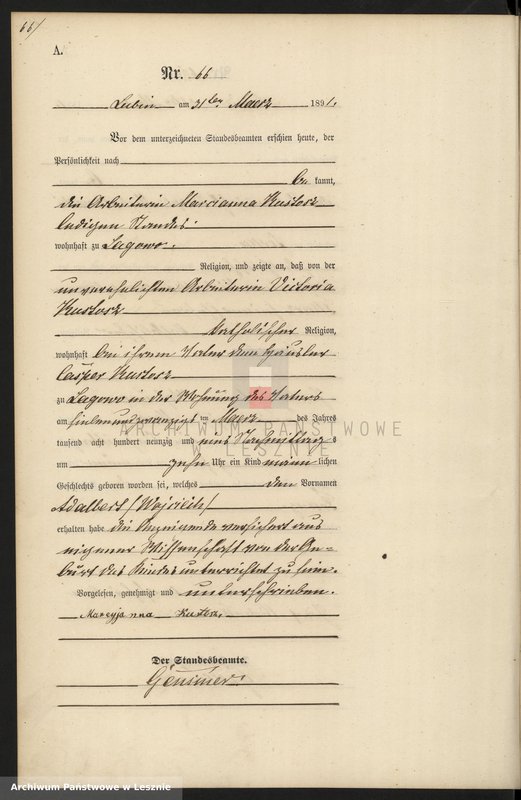 66/
A.
Nr. 66
Lubin am 31ten Maerz 1891.
Vor dem unterzeichneten Standesbeamten erschien heute, der
Persönlichkeit nach
be kannt,
die Arbeiterin Marcianna Kustosz
ledigen Standes
wohnhaft zu Lagowo,
Religion, und zeigte an, daß von der
unverehelichten Arbeiterin Victoria
Kustosz
katholischer Religion,
wohnhaft bei ihrem Vater dem Häusler
Casper Kustosz
zu Lagowo in der Wohnung des Vaters
am sieben und zwanzigsten Maerz des Jahres
tausend acht hundert neunzig und eins Nachmittags
um zehn Uhr ein Kind männlichen
Geschlechts geboren worden sei, welches den Vornamen
Adalbert (Wojciech)
erhalten habe die Anzeigende versichert aus
eigener Wissenschaft von der Ge=
burt des Kindes unterrichtet zu sein.
Vorgelesen, genehmigt und unterschrieben.
Marcyjanna Kustosz
Der Standesbeamte.
ARCHIWUM PAŃSTWOWE
W LESZNIE
Archiwum Państwowe w Lesznie